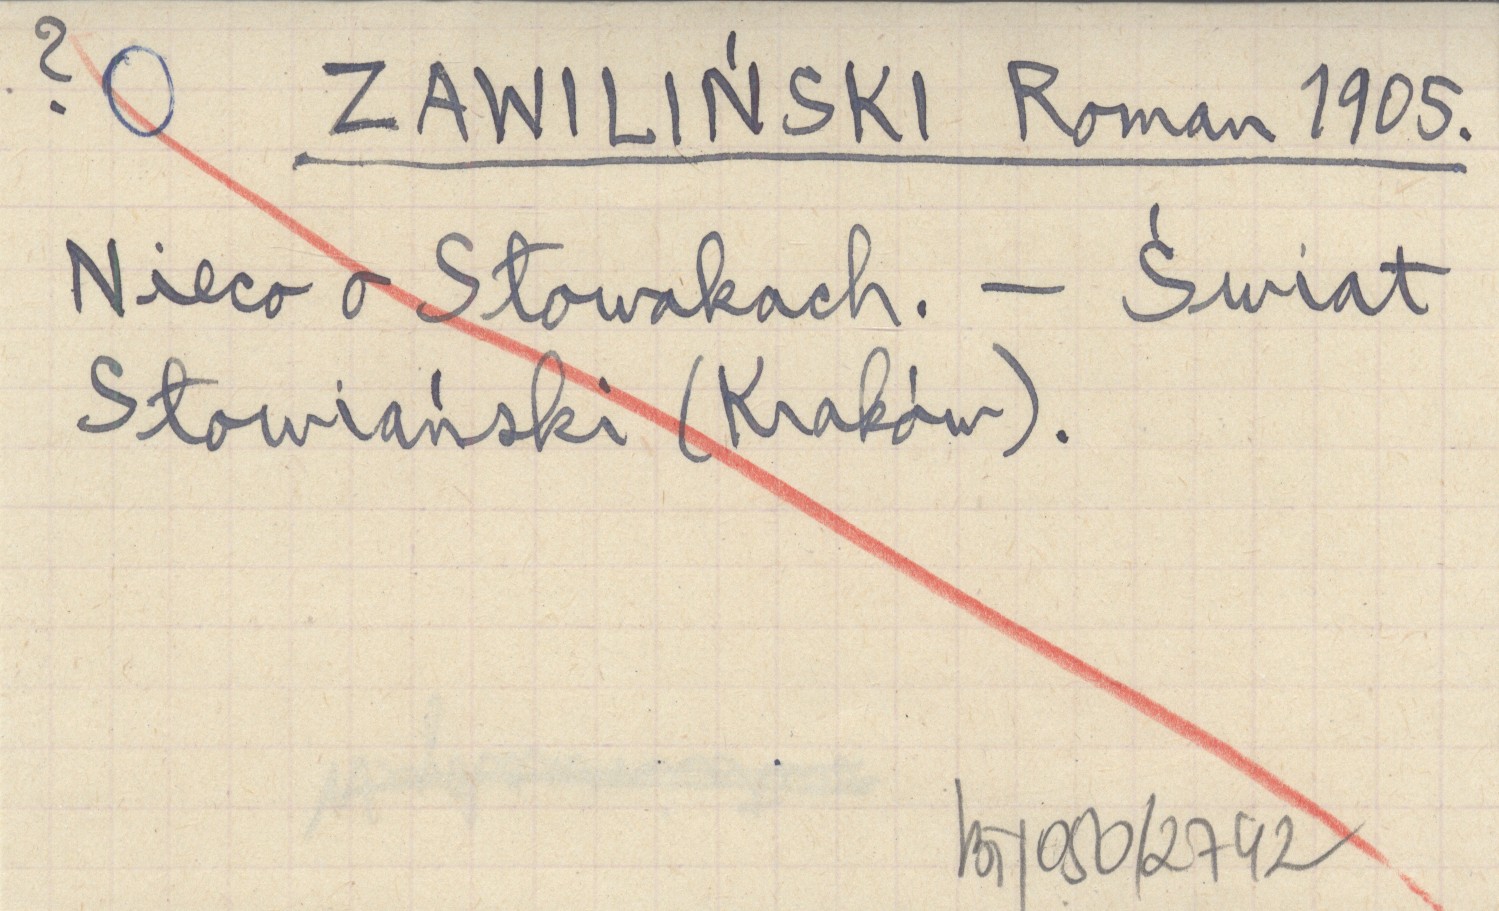 ? O ZAWILIŃSKI Roman 1905.
Nieco o Słowakach. — Świat
Słowiański (Kraków).
050/2742